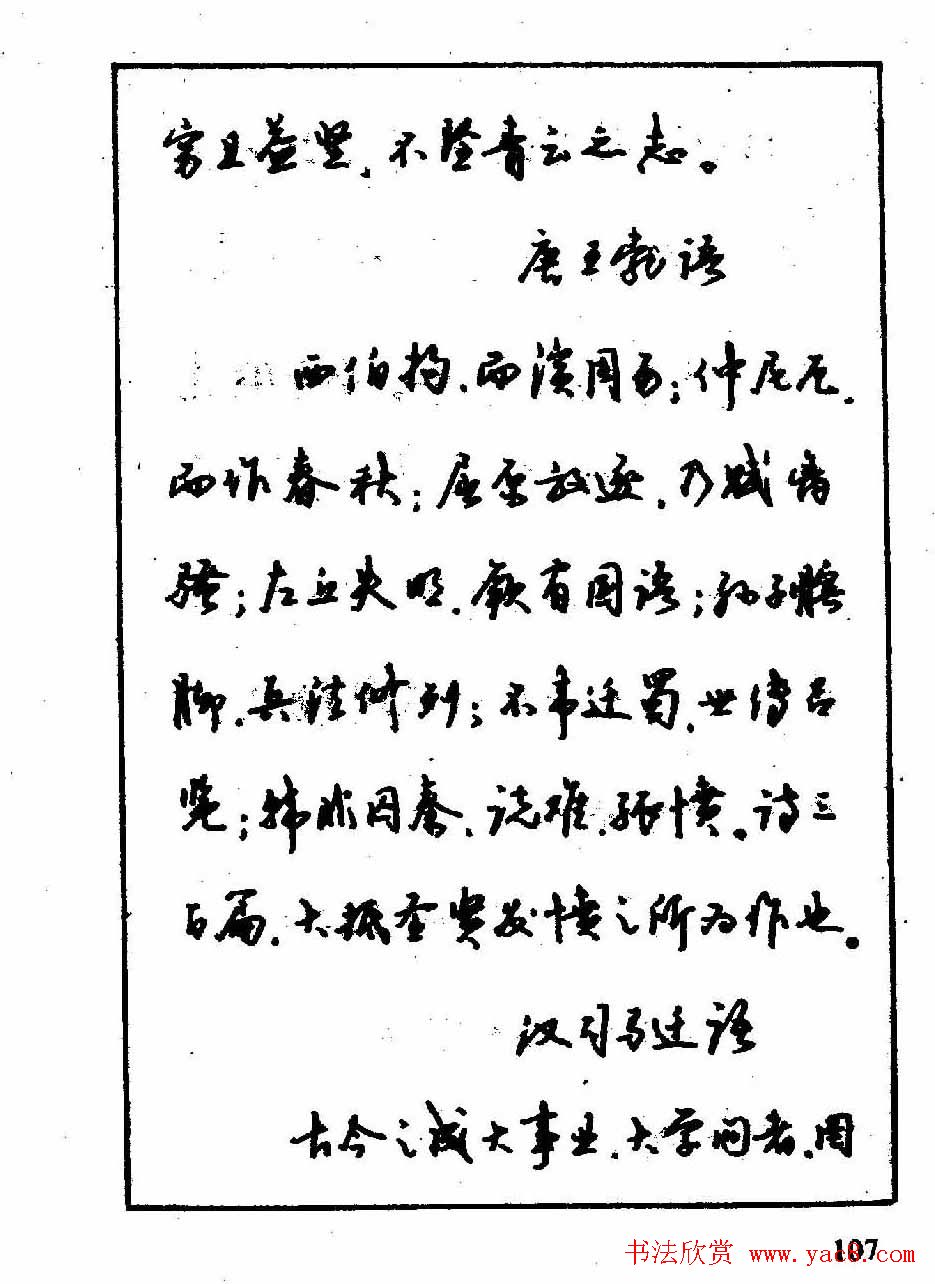 穷且益坚,不坠青云之志。
唐王勃语
西伯拘,而演周易;仲尼厄,
而作春秋;屈原放逐,乃赋离
骚;左丘失明,厥有国语;孙子膑
脚,兵法修列;不韦迁蜀,世传吕
览;韩非囚秦,说难、孤愤。诗三
百篇,大抵圣贤发愤之所为作也。
汉司马迁语
古今之成大事业、大学问者,罔
107
书法欣赏 www.yac8.com